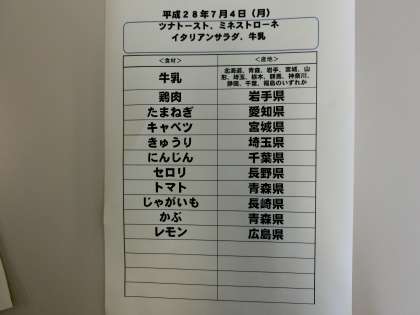 平成28年7月4日（月）
ツナトースト、ミネストローネ
イタリアンサラダ、牛乳
＜食材＞ ＜産地＞
牛乳 北海道、青森、岩手、宮城、山
形、埼玉、栃木、群馬、神奈川、
静岡、千葉、福島のいずれか
鶏肉 岩手県
たまねぎ 愛知県
キャベツ 宮城県
きゅうり 埼玉県
にんじん 千葉県
セロリ 長野県
トマト 青森県
じゃがいも 長崎県
かぶ 青森県
レモン 広島県